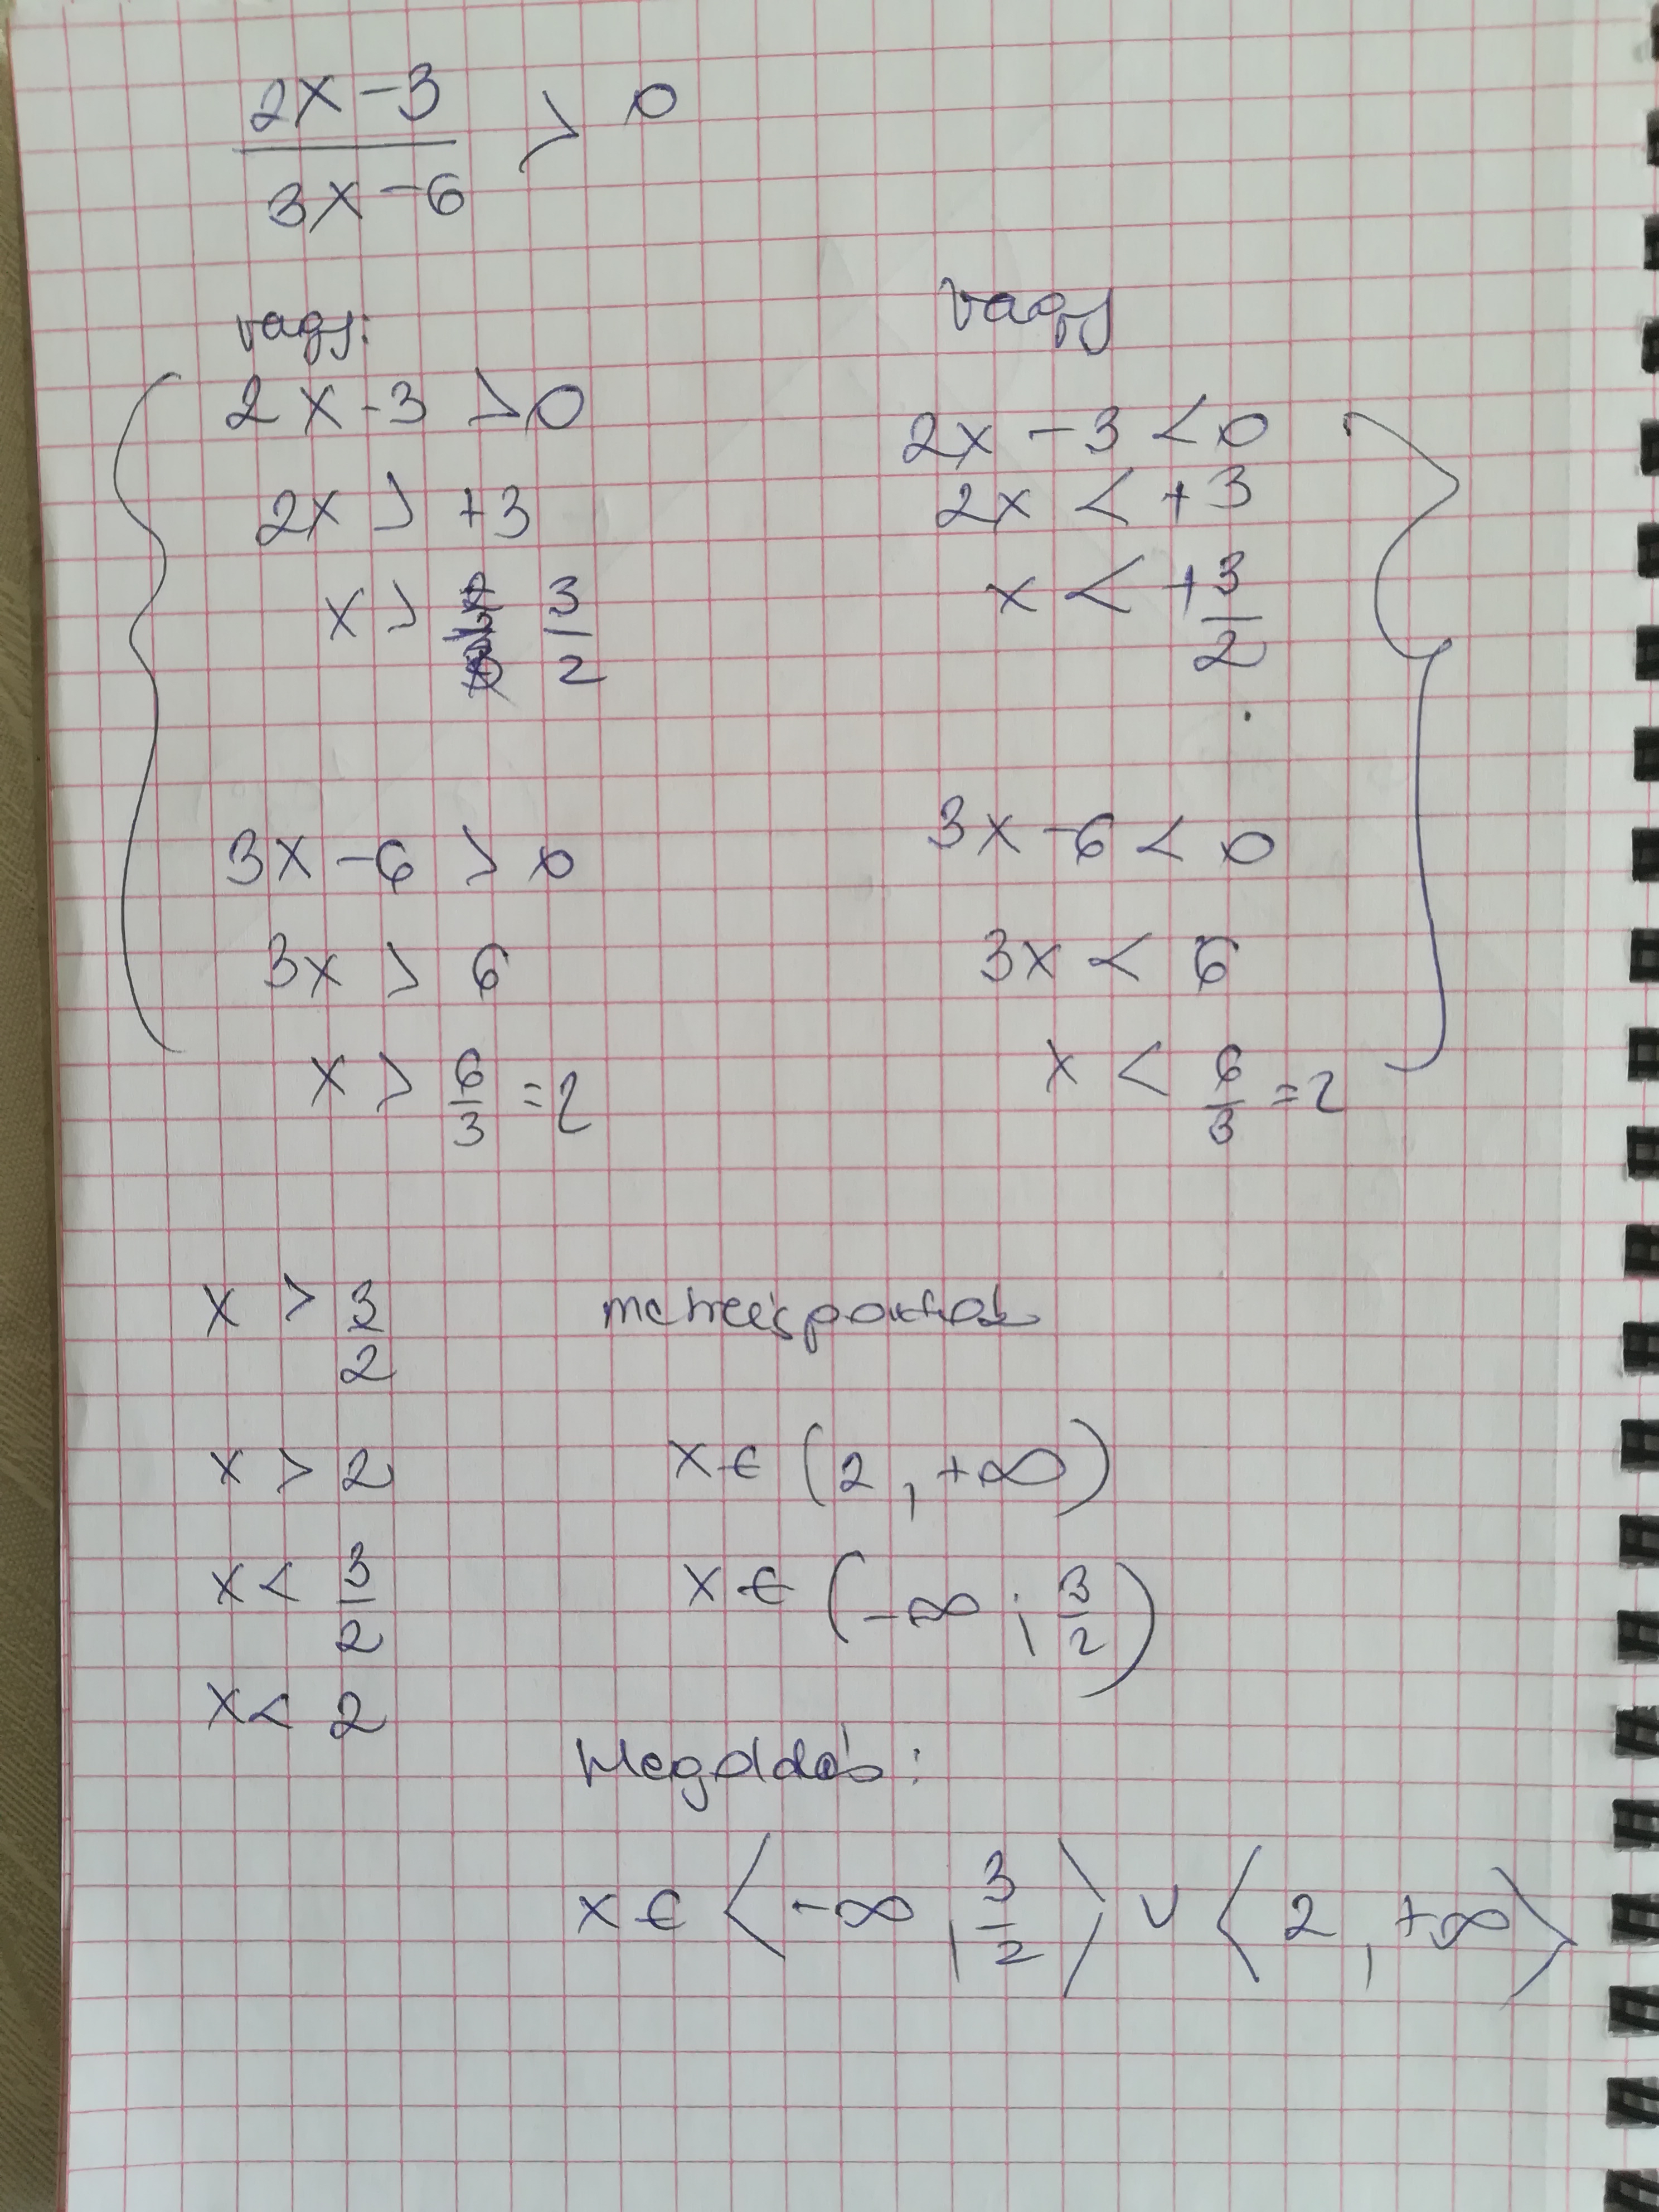 2x-3
3x-6
> 0
vagy:
2x-3 >0
2x > +3
x > 3/2
3x-6 > 0
3x > 6
x > 6/3 =2
vagy
2x - 3 < 0
2x < +3
x < +3/2
3x -6 < 0
3x < 6
x < 6/3 =2
x > 3/2
x > 2 x∈ (2, +∞)
x < 3/2 x∈ (-∞ ; 3/2)
x < 2
Megoldás:
x ∈ <-∞, 3/2> ∪ <2, +∞>